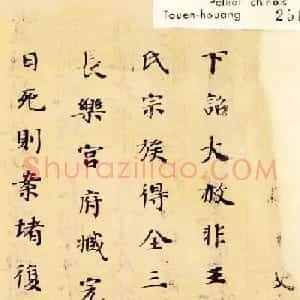 Pelliot chinois
Touen-houang
下詔大赦非王
氏宗族得全三
長樂宮府臧完
日死則案堵復
Shufaziliao.com